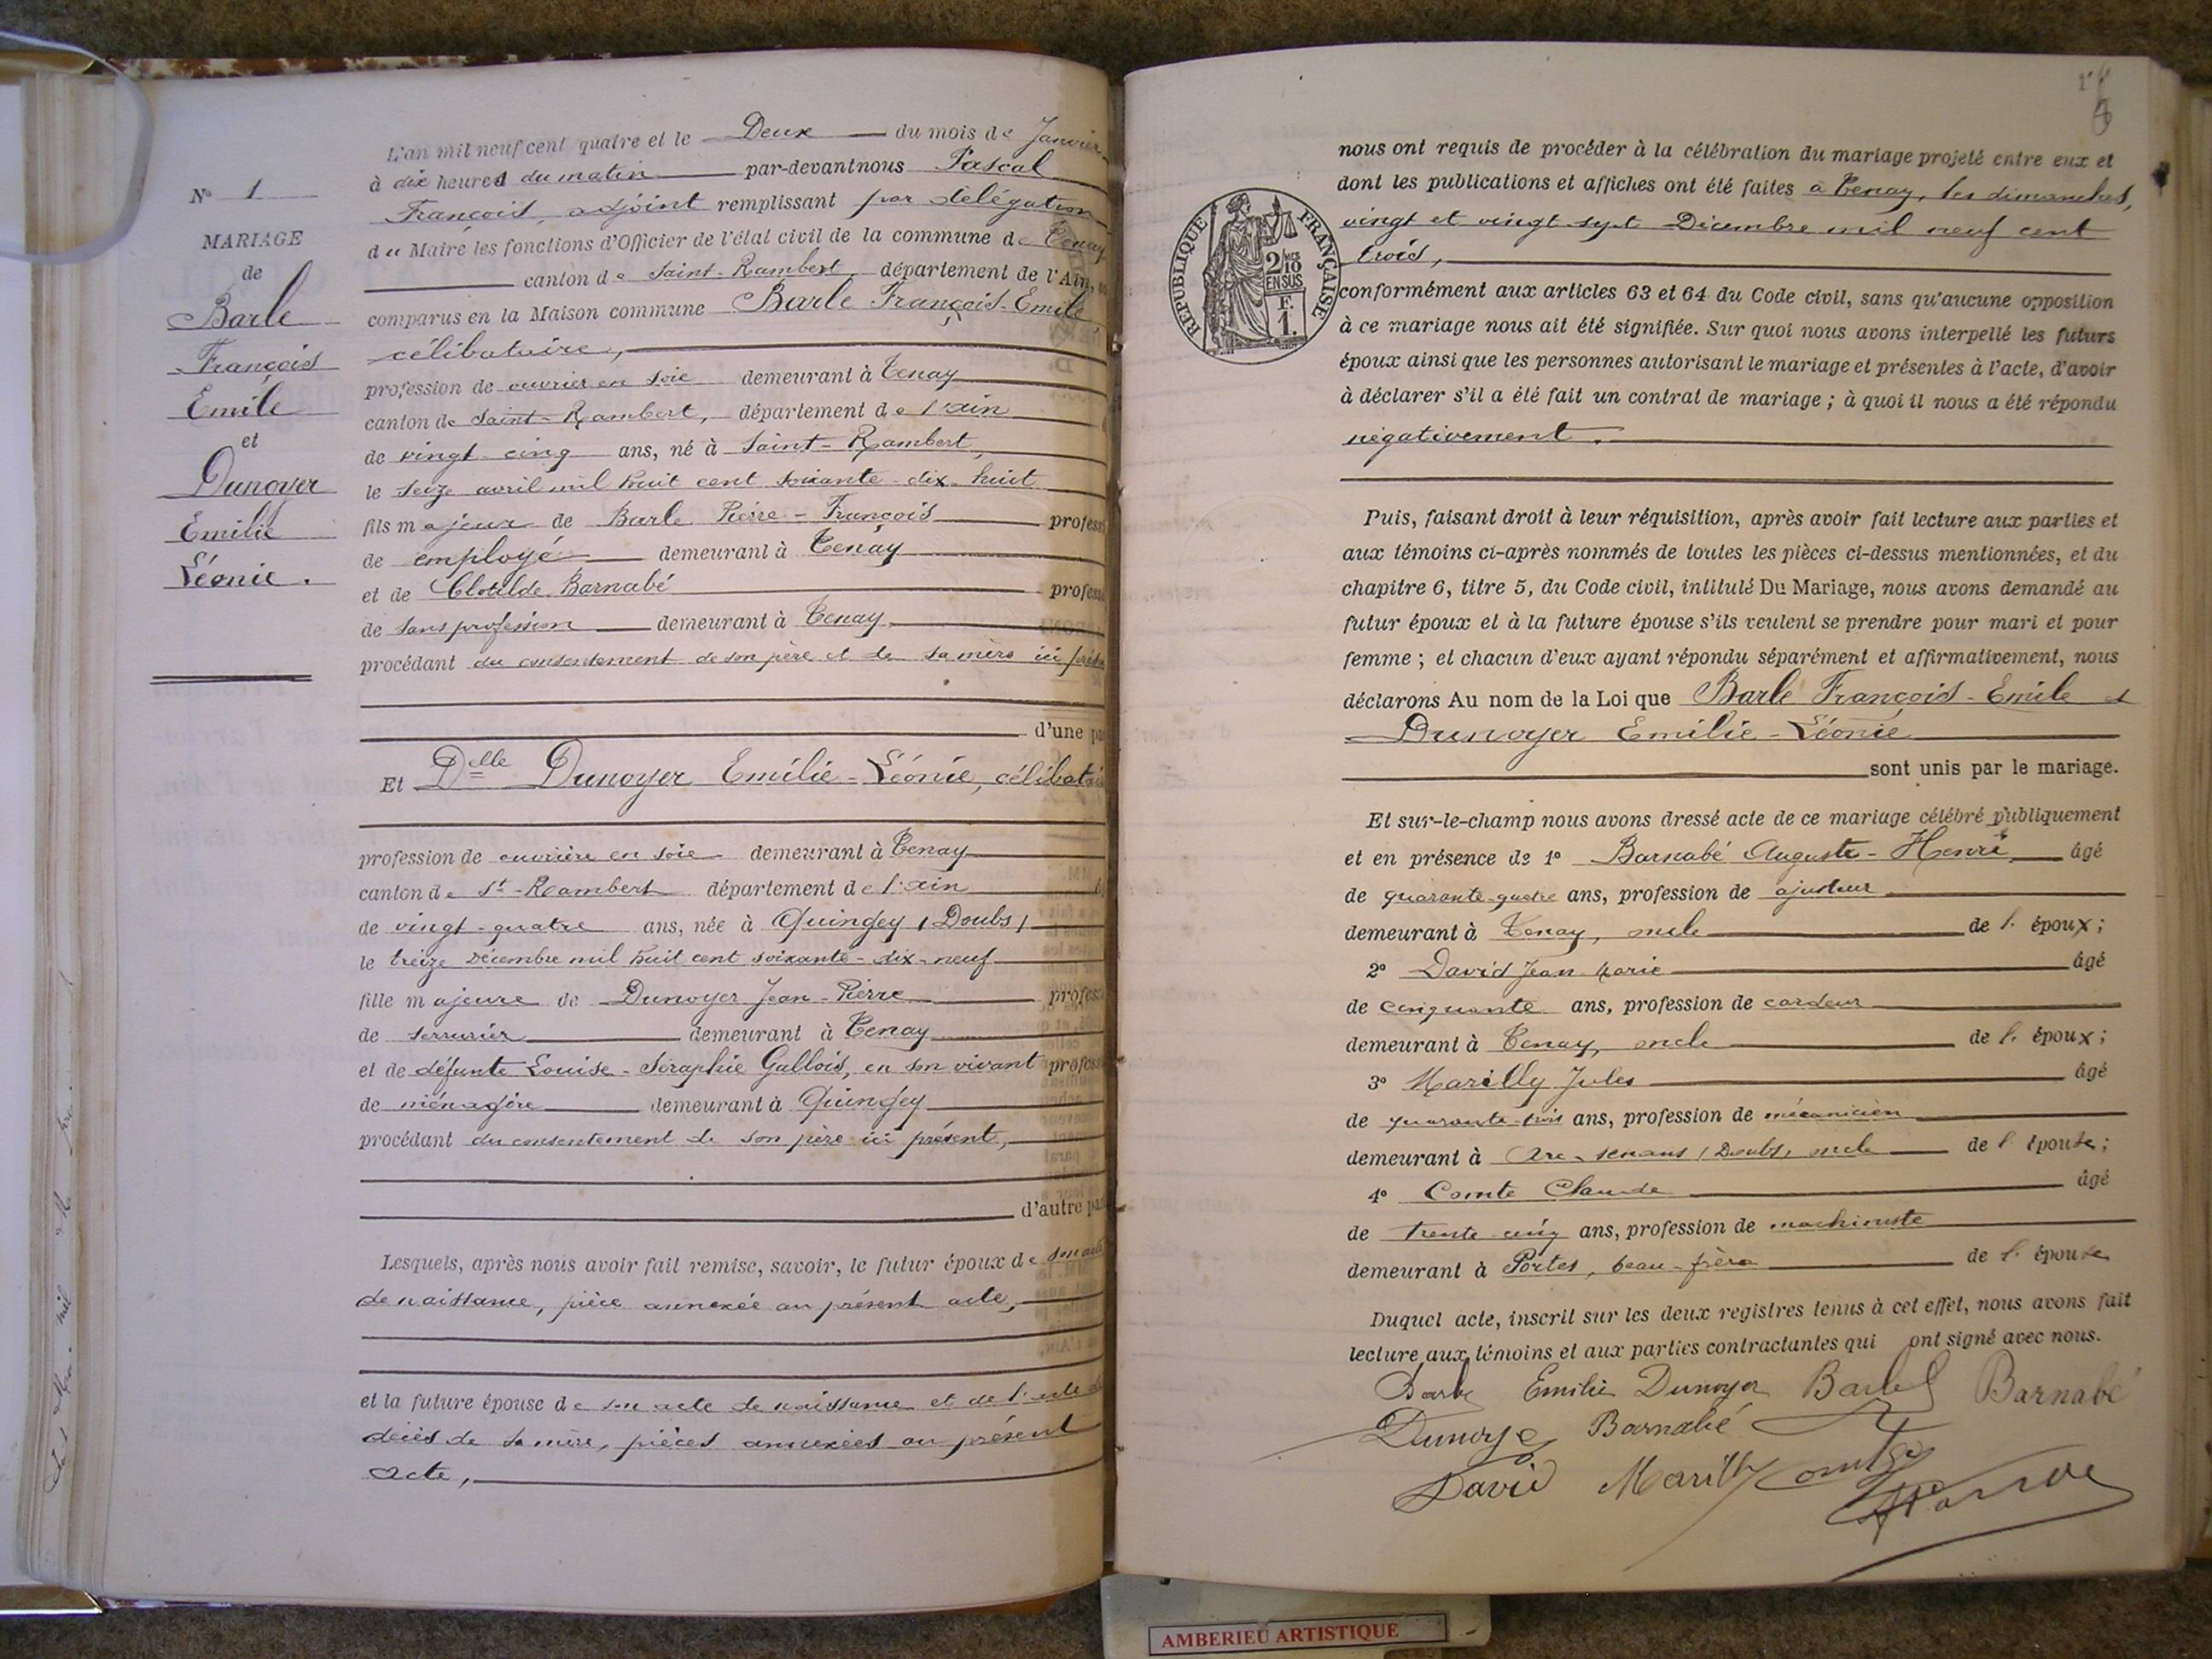 N° 1
MARIAGE
de
Barle
François
Emile
et
Dunoyer
Emilie
Léonie.
L'an mil neuf cent quatre et le Deux du mois de Janvier
à dix heures du matin par-devant nous Pascal
François, adjoint remplissant par délégation
du Maire les fonctions d'Officier de l'état civil de la commune de Tenay
canton de Saint-Rambert, département de l'Ain,
comparus en la Maison commune Barle François-Emile,
célibataire,
profession de ouvrier en soie demeurant à Tenay
canton de Saint-Rambert, département de l'ain
de vingt-cinq ans, né à Saint-Rambert,
le seize avril mil huit cent soixante-dix-huit
fils majeur de Barle Pierre-François profess
de employé demeurant à Tenay
et de Clotilde Barnabé profess
de sans profession demeurant à Tenay,
procédant du consentement de son père et de sa mère ici
d'une pa
Et Delle Dunoyer Emilie-Léonie, célibatai
profession de ouvrière en soie demeurant à Tenay
canton de St-Rambert département de l'ain
de vingt-quatre ans, née à Quingey (Doubs)
le treize Décembre mil huit cent soixante-dix-neuf
fille majeure de Dunoyer Jean-Pierre profess
de serrurier demeurant à Tenay
et de défunte Louise-Séraphie Gallois, en son vivant profess
de ménagère demeurant à Quingey
procédant du consentement de son père ici présent,
d'autre pa
Lesquels, après nous avoir fait remise, savoir, le futur époux de son acte
de naissance, pièce annexée au présent acte,
et la future épouse de son acte de naissance et de l'acte de
décès de sa mère, pièces annexées au présent
acte,
nous ont requis de procéder à la célébration du mariage projeté entre eux et
dont les publications et affiches ont été faites à Tenay, les dimanches,
vingt et vingt sept Décembre mil neuf cent
trois,
RÉPUBLIQUE FRANÇAISE
2/10 MES
EN SUS
F.
1.
conformément aux articles 63 et 64 du Code civil, sans qu'aucune opposition
à ce mariage nous ait été signifiée. Sur quoi nous avons interpellé les futurs
époux ainsi que les personnes autorisant le mariage et présentes à l'acte, d'avoir
à déclarer s'il a été fait un contrat de mariage ; à quoi il nous a été répondu
négativement.
Puis, faisant droit à leur réquisition, après avoir fait lecture aux parties et
aux témoins ci-après nommés de toutes les pièces ci-dessus mentionnées, et du
chapitre 6, titre 5, du Code civil, intitulé Du Mariage, nous avons demandé au
futur époux et à la future épouse s'ils veulent se prendre pour mari et pour
femme ; et chacun d'eux ayant répondu séparément et affirmativement, nous
déclarons Au nom de la Loi que Barle François-Emile et
Dunoyer Emilie-Léonie
sont unis par le mariage.
Et sur-le-champ nous avons dressé acte de ce mariage célébré publiquement
et en présence de 1° Barnabé Auguste-Henri âgé
de quarante-quatre ans, profession de ajusteur
demeurant à Tenay, oncle de l' époux ;
2° David Jean-Marie âgé
de cinquante ans, profession de cardeur
demeurant à Tenay, oncle de l' époux ;
3° Marilly Jules âgé
de quarante-trois ans, profession de mécanicien
demeurant à Arc-senans (Doubs) oncle de l' épouse ;
4° Comte Claude âgé
de trente cinq ans, profession de machiniste
demeurant à Portes, beau-frère de l' épouse
Duquel acte, inscrit sur les deux registres tenus à cet effet, nous avons fait
lecture aux témoins et aux parties contractantes qui ont signé avec nous.
Barle Emilie Dunoyer Barle Barnabé
Dunoye Barnabé
David Marilly Comte
AMBERIEU ARTISTIQUE